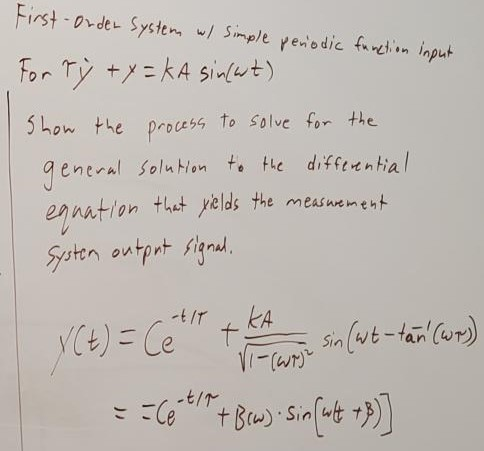 First-Order System w/ Simple periodic function input
For τẏ + y = kA sin(ωt)
Show the process to solve for the
general solution to the differential
equation that yields the measurement
system output signal.
y(t) = Ce^{-t/τ} + kA/√(1-(ωτ)²) sin(ωt - tan⁻¹(ωτ))
= =Ce^{-t/τ} + B(ω) · Sin[ωt + β)]